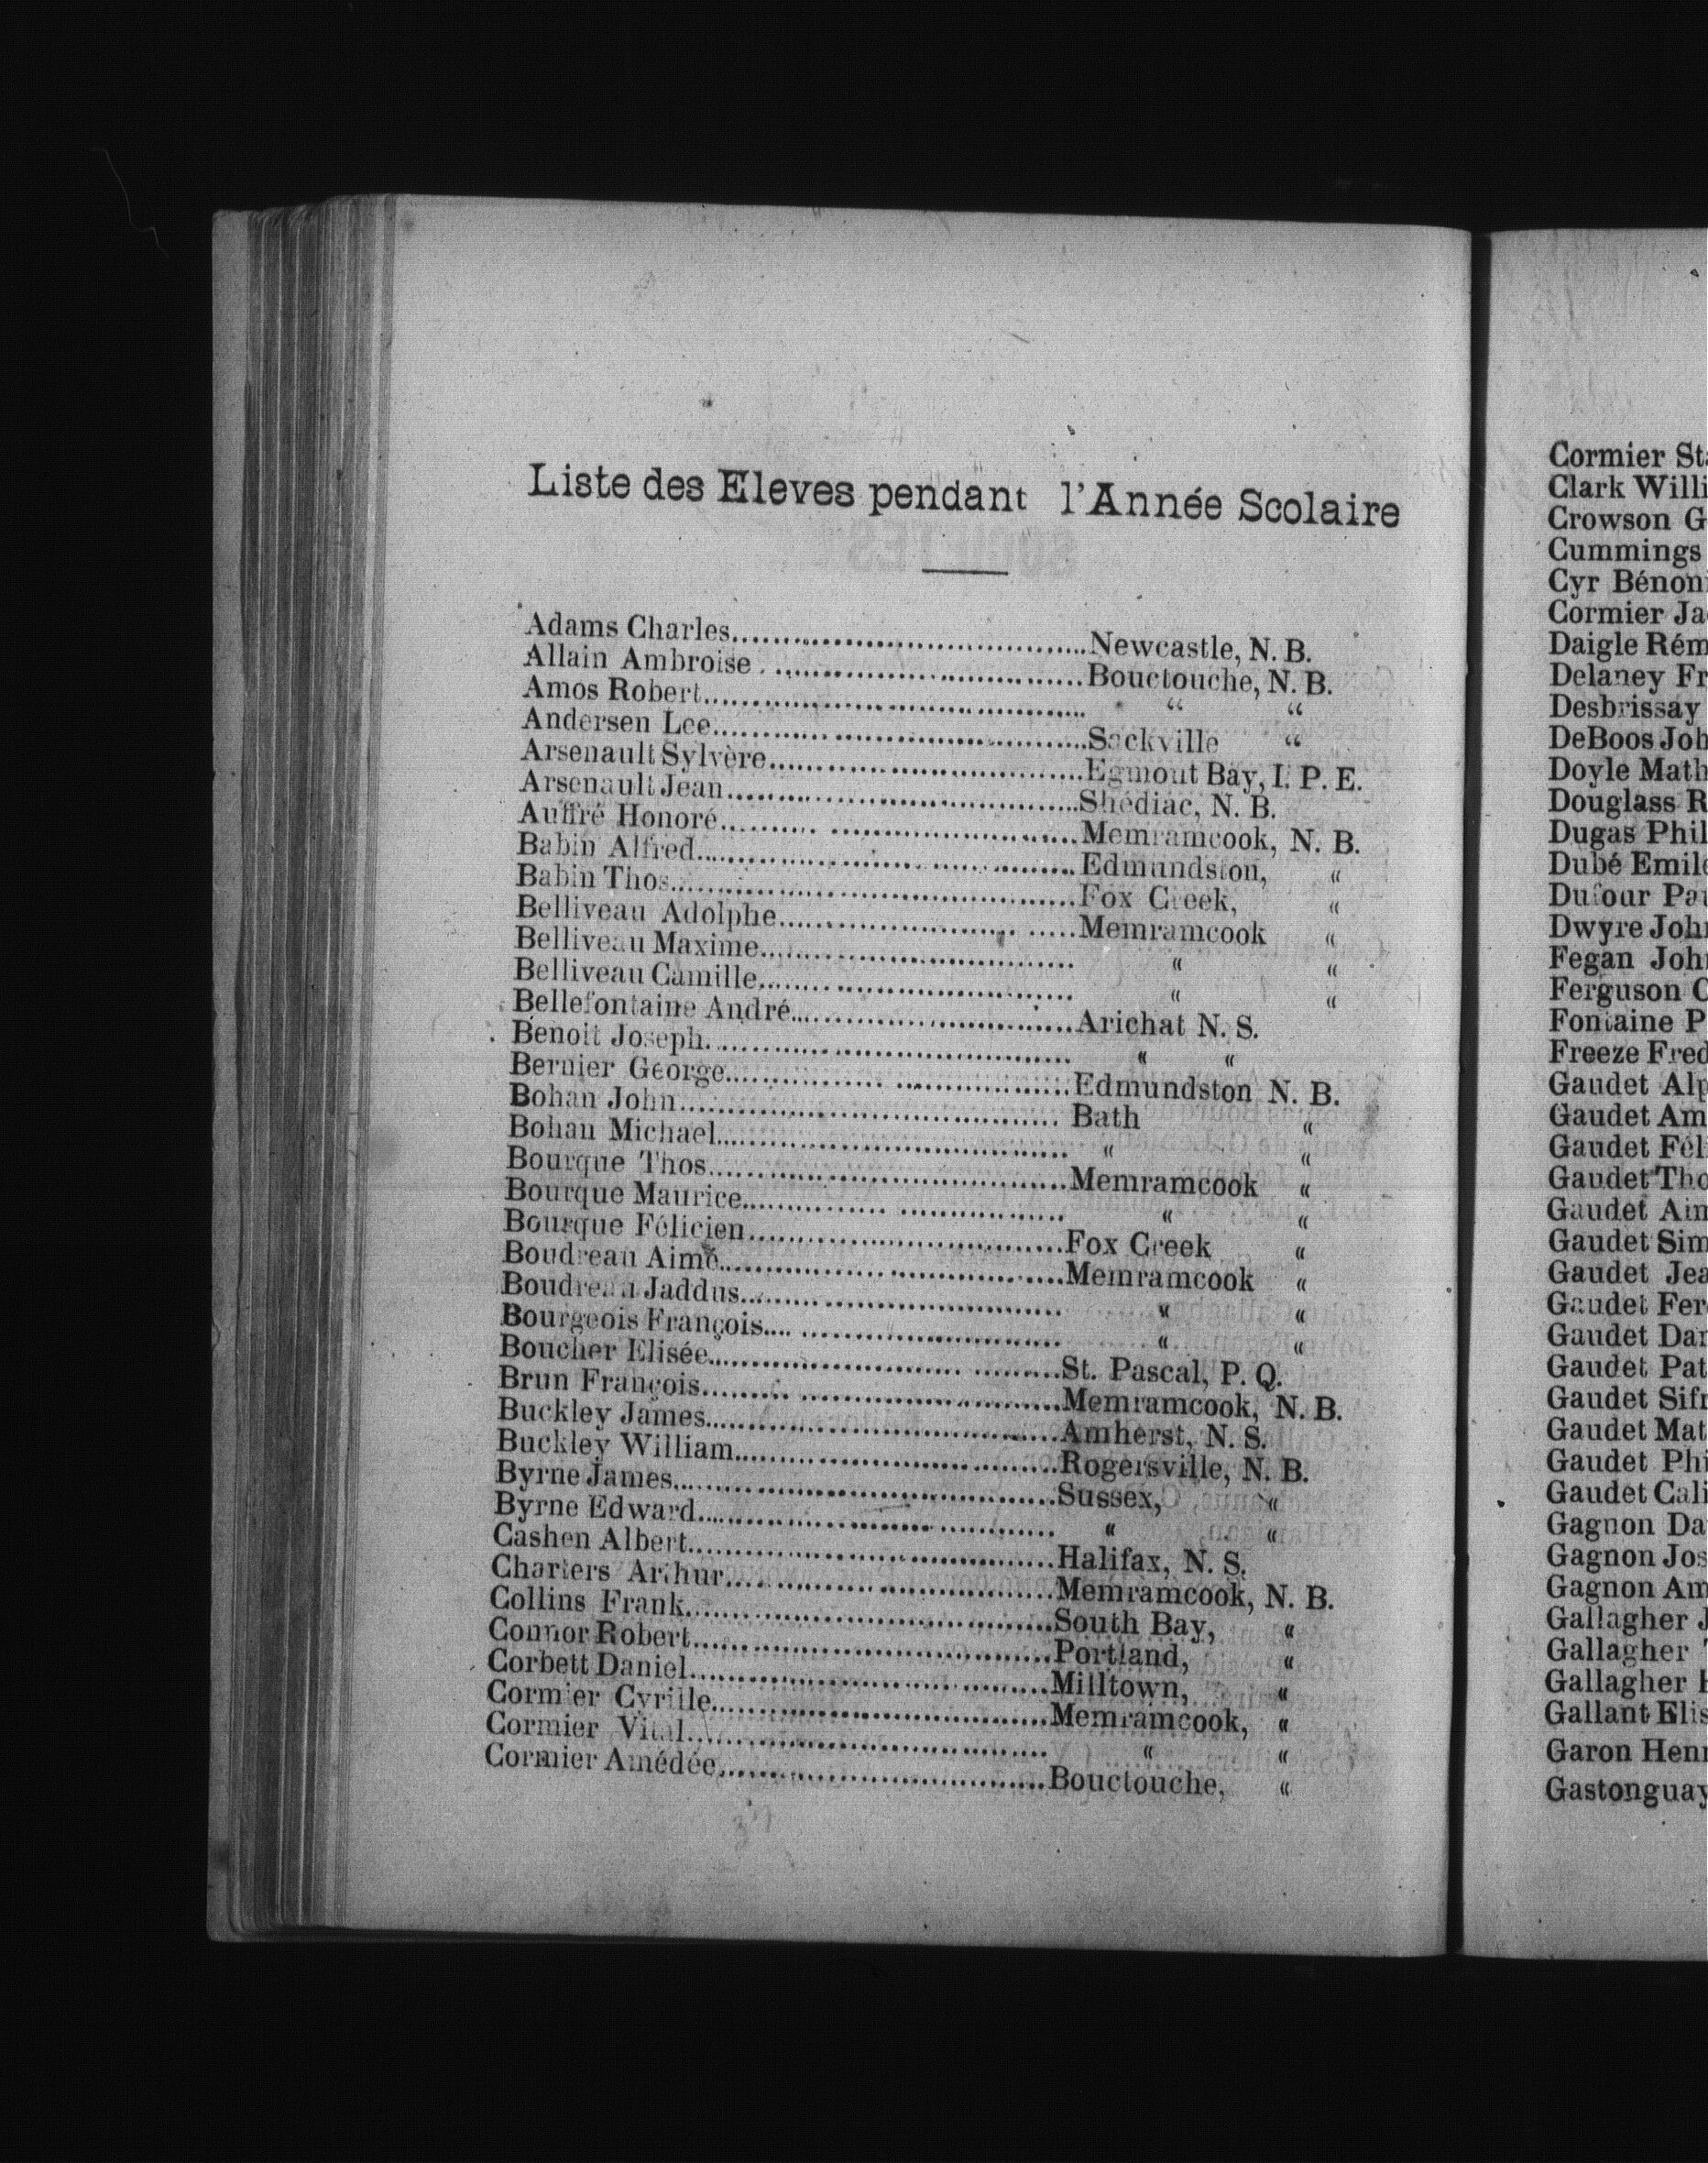 Liste des Eleves pendant l'Année Scolaire
Adams Charles........Newcastle, N. B.
Allain Ambroise........Bouctouche, N. B.
Amos Robert........ “ “
Andersen Lee........Sackville “
Arsenault Sylvère........Egmont Bay, I. P. E.
Arsenault Jean........Shédiac, N. B.
Auffré Honoré........Memramcook, N. B.
Babin Alfred........Edmundston, “
Babin Thos........Fox Creek, “
Belliveau Adolphe........Memramcook “
Belliveau Maxime........ “ “
Belliveau Camille........ “ “
Bellefontaine André........Arichat N. S.
Benoit Joseph........ “ “
Bernier George........Edmundston N. B.
Bohan John........Bath “
Bohan Michael........ “ “
Bourque Thos........Memramcook “
Bourque Maurice........ “ “
Bourque Félicien........Fox Creek “
Boudreau Aimé........Memramcook “
Boudreau Jaddus........ “ “
Bourgeois François........ “ “
Boucher Elisée........St. Pascal, P. Q.
Brun François........Memramcook, N. B.
Buckley James........Amherst, N. S.
Buckley William........Rogersville, N. B.
Byrne James........Sussex, “
Byrne Edward........ “ “
Cashen Albert........Halifax, N. S.
Charters Arthur........Memramcook, N. B.
Collins Frank........South Bay, “
Connor Robert........Portland, “
Corbett Daniel........Milltown, “
Cormier Cyrille........Memramcook, “
Cormier Vital........ “ “
Cormier Amédée........Bouctouche, “
Cormier St
Clark Willi
Crowson G
Cummings
Cyr Bénon
Cormier Ja
Daigle Rém
Delaney Fr
Desbrissay
DeBoos Joh
Doyle Math
Douglass R
Dugas Phil
Dubé Emil
Dufour Pa
Dwyre Joh
Fegan Joh
Ferguson C
Fontaine P
Freeze Fred
Gaudet Alp
Gaudet Am
Gaudet Fél
Gaudet Tho
Gaudet Aim
Gaudet Sim
Gaudet Jea
Gaudet Fer
Gaudet Dan
Gaudet Pat
Gaudet Sifr
Gaudet Mat
Gaudet Phi
Gaudet Cali
Gagnon Da
Gagnon Jos
Gagnon Am
Gallagher J
Gallagher
Gallagher
Gallant Elis
Garon Henr
Gastonguay